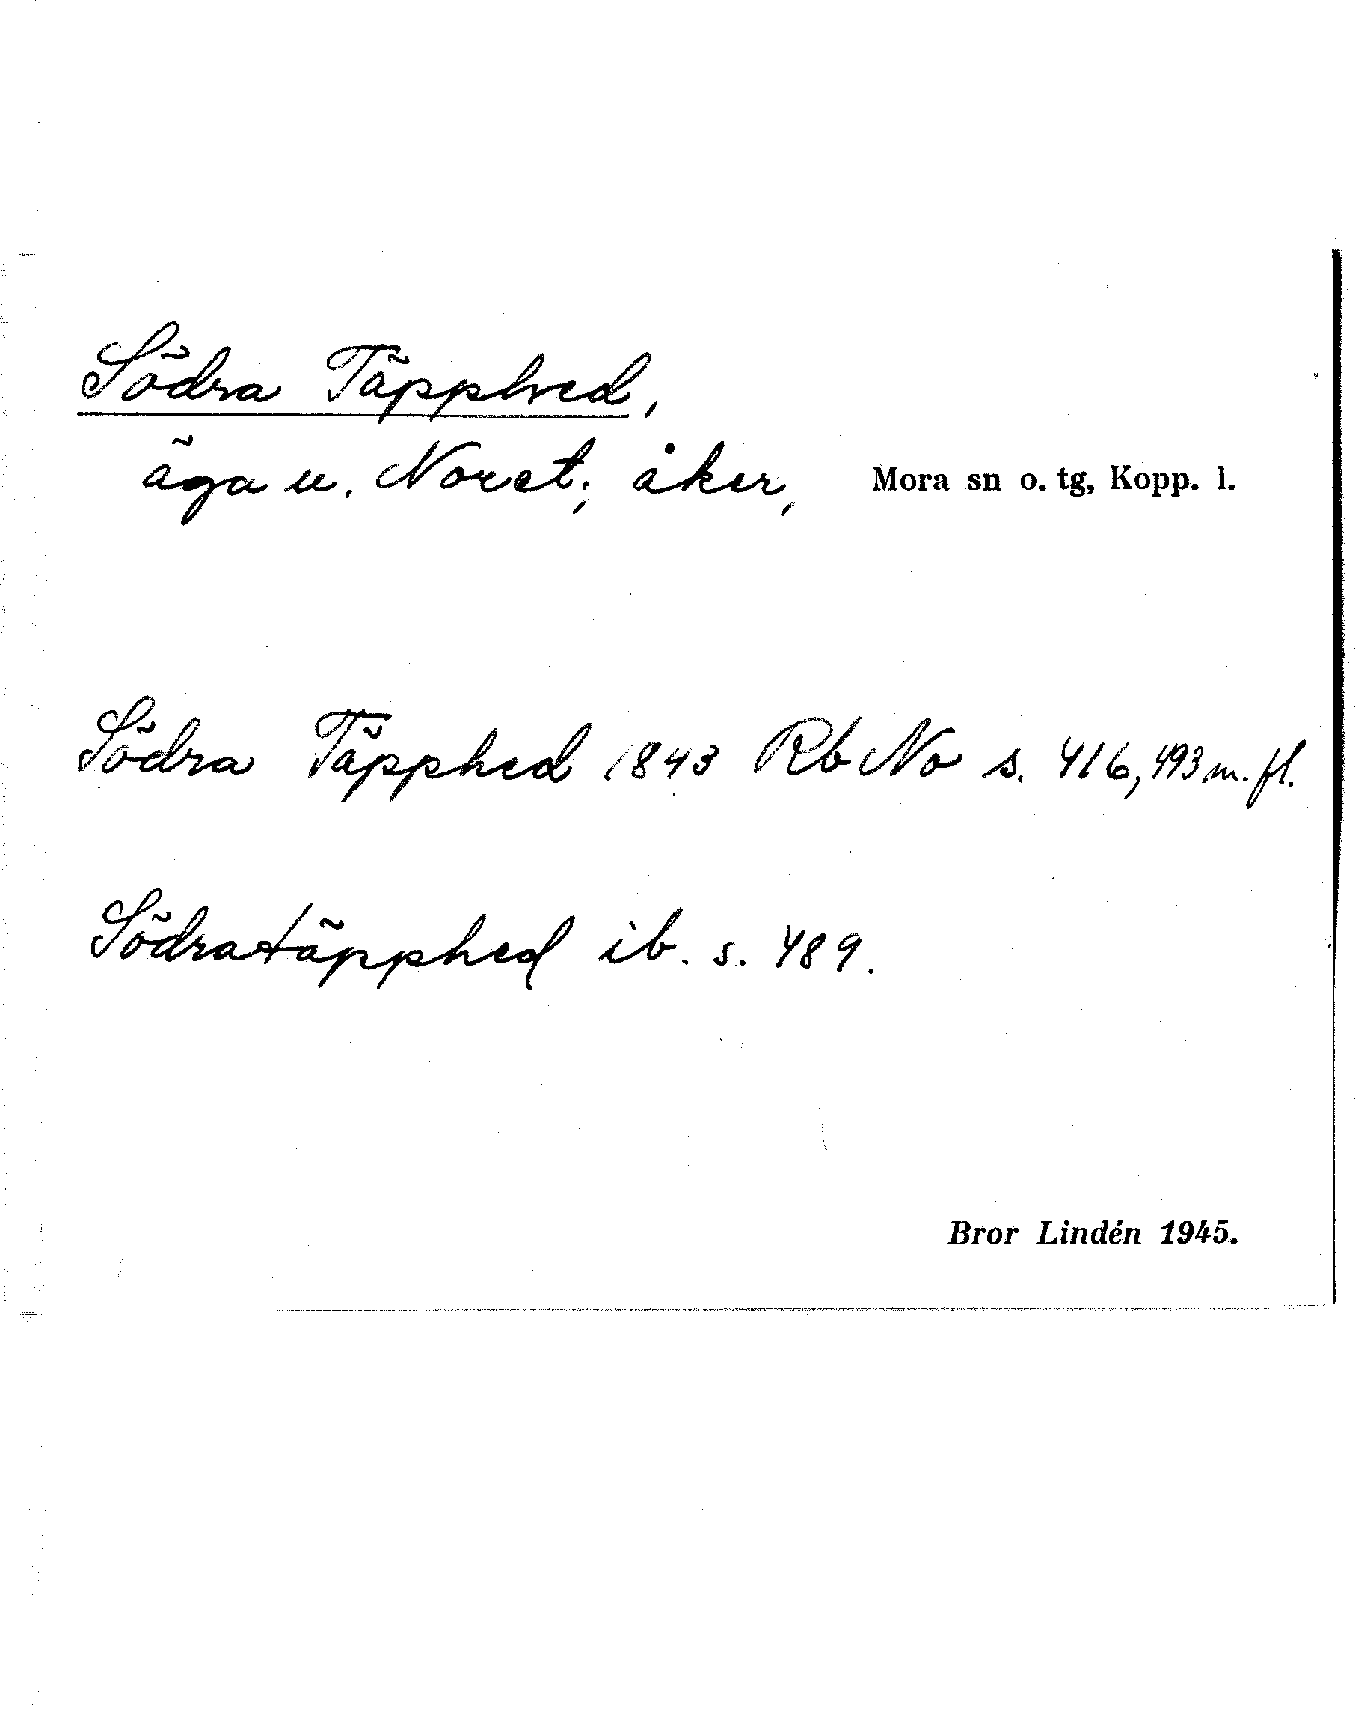 Södra Täpphed,
äga u. Noret; åker, Mora sn o. tg, Kopp. l.
Södra Täpphed 1843 Rb No s. 416, 493 m. fl.
Södratäpphed ib. s. 489.
Bror Lindén 1945.